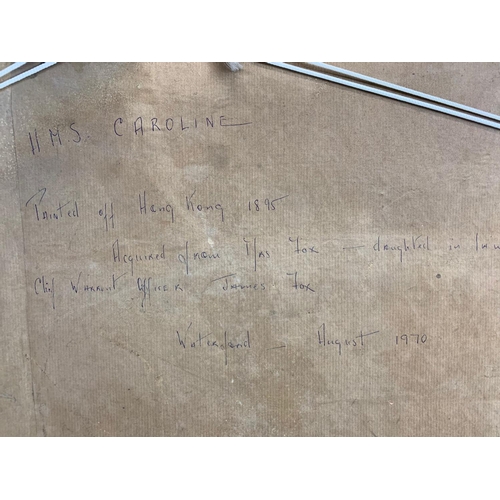 HMS. CAROLINE
Painted off Hong Kong 1895
Acquired from Mrs Fox – daughter in law
Chief Warrant Officer James Fox
Waterford – August 1970